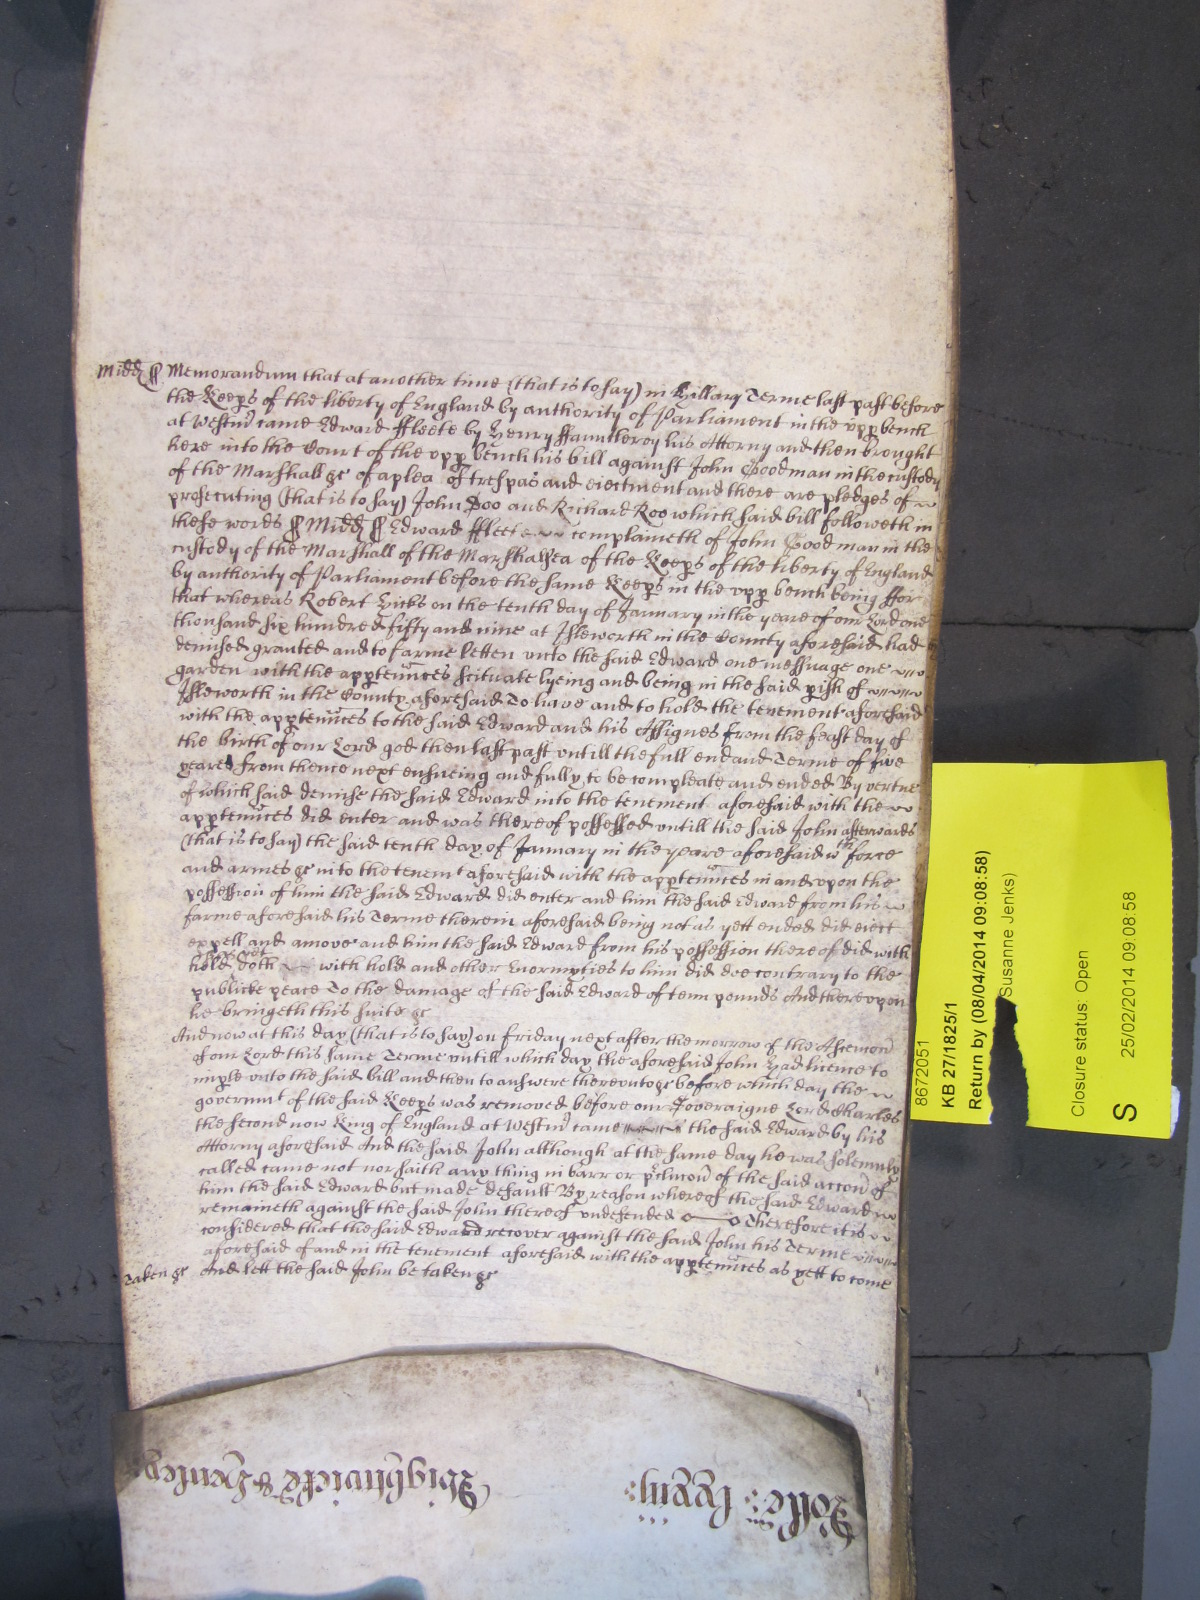 Midd ss Memorandum that at another time (that is to say) in Hillary Terme last past before
the Keeps of the liberty of England by authority of Parliament in the upp bench
at Westm came Edward ffleete by Henry ffauntleroy his Attorny and then brought
here into the Court of the upp bench his bill against John Goodman in the custody
of the Marshall &c of a plea of trespas and eiectment and there are pledges of
prosecuting (that is to say) John Doo and Richard Roo which said bill followeth in
these words ss Midd ss Edward ffleete complaineth of John Goodman in the
custody of the Marshall of the Marshalsea of the Keeps of the liberty of England
by authority of Parliament before the same Keeps in the upp bench being ffor
that whereas Robert Hicks on the tenth day of January in the yeare of our Lord one
thousand six hundred fifty and nine at Isleworth in the County aforesaid had
demised granted and to farme letten unto the said Edward one messuage one
garden with the apptennces scituate lyeing and being in the said pish of
Isleworth in the County aforesaid To have and to hold the tenement aforesaid
with the apptennces to the said Edward and his Assignes from the feast day of
the birth of our Lord god then last past untill the full end and Terme of five
yeares from thence next ensueing and fully to be compleate and ended By vertue
of which said demise the said Edward into the tenement aforesaid with the
apptennces did enter and was thereof possessed untill the said John afterwards
(that is to say) the said tenth day of January in the yeare aforesaid wth force
and armes &c into the tenemt aforesaid with the apptennces in and upon the
possession of him the said Edward did enter and him the said Edward from his
farme aforesaid his Terme therein aforesaid being not as yett ended did eiect
expell and amove and him the said Edward from his possession thereof did with
hold and yet doth with hold and other Enormyties to him did doe contrary to the
publicke peace To the damage of the said Edward of tenn pounds And thereupon
he bringeth this suite &c
And now at this day (that is to say) on Friday next after the morrow of the Ascencon
of our Lord this same Terme untill which day the aforesaid John had licence to
imple unto the said bill and then to answere thereunto &c before which day the
governmt of the said Keeps was removed before our Soveraigne Lord Charles
the second now King of England at Westm came the said Edward by his
Attorny aforesaid And the said John although at the same day he was solemnly
called came not nor saith any thing in barr or pclusion of the said accon of
him the said Edward but made default By reason whereof the said Edward
remaineth against the said John thereof undefended Therefore it is
considered that the said Edward recover against the said John his Terme
aforesaid of and in the tenement aforesaid with the apptennces as yett to come
Taken &c And lett the said John be taken &c
Rolle
8672051
KB 27/1825/1
Return by (08/04/2014 09:08:58)
Susanne Jenks)
Closure status: Open
S
25/02/2014 09:08:58